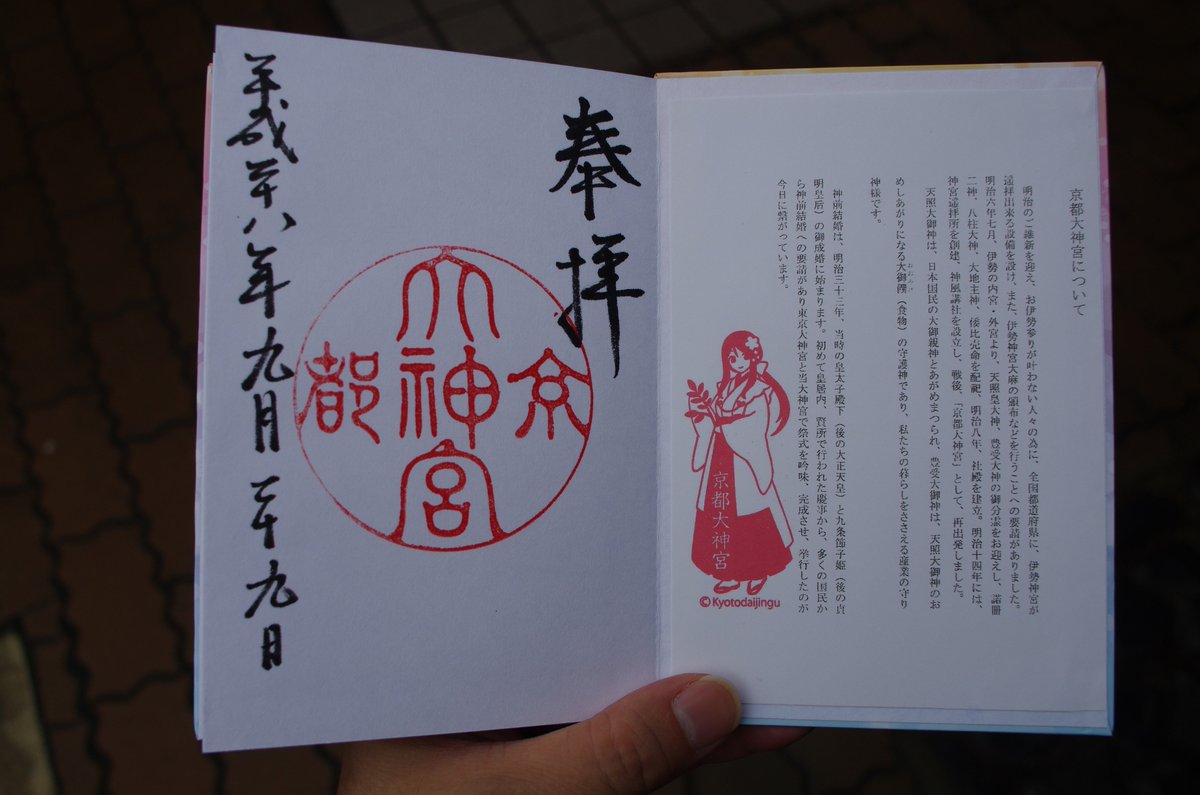 京都大神宮について
明治のご維新を迎え、お伊勢参りが叶わない人々の為に、全国都道府県に、伊勢神宮が
遥拝出来る設備を設け、また、伊勢神宮大麻の頒布などを行うことへの要請がありました。
明治六年七月、伊勢の内宮・外宮より、天照皇大神、豊受大神の御分霊をお迎えし、諾冊
二神、八柱大神、大地主神、倭比売命を配祀、明治八年、社殿を建立。明治十四年には、
神宮遥拝所を創建、神風講社を設立し、戦後、「京都大神宮」として、再出発しました。
天照大御神は、日本国民の大御親神とあがめまつられ、豊受大御神は、天照大御神のお
めしあがりになる大御饌（食物）の守護神であり、私たちの暮らしをささえる産業の守り
神様です。
神前結婚は、明治三十三年、当時の皇太子殿下（後の大正天皇）と九条節子姫（後の貞
明皇后）の御成婚に始まります。初めて皇居内、賢所で行われた慶事から、多くの国民か
ら神前結婚への要請があり東京大神宮と当大神宮で祭式を吟味、完成させ、挙行したのが
今日に繋がっています。
京都大神宮
©Kyotodaijingu
奉拝
京都大神宮
平成二十八年九月二十九日